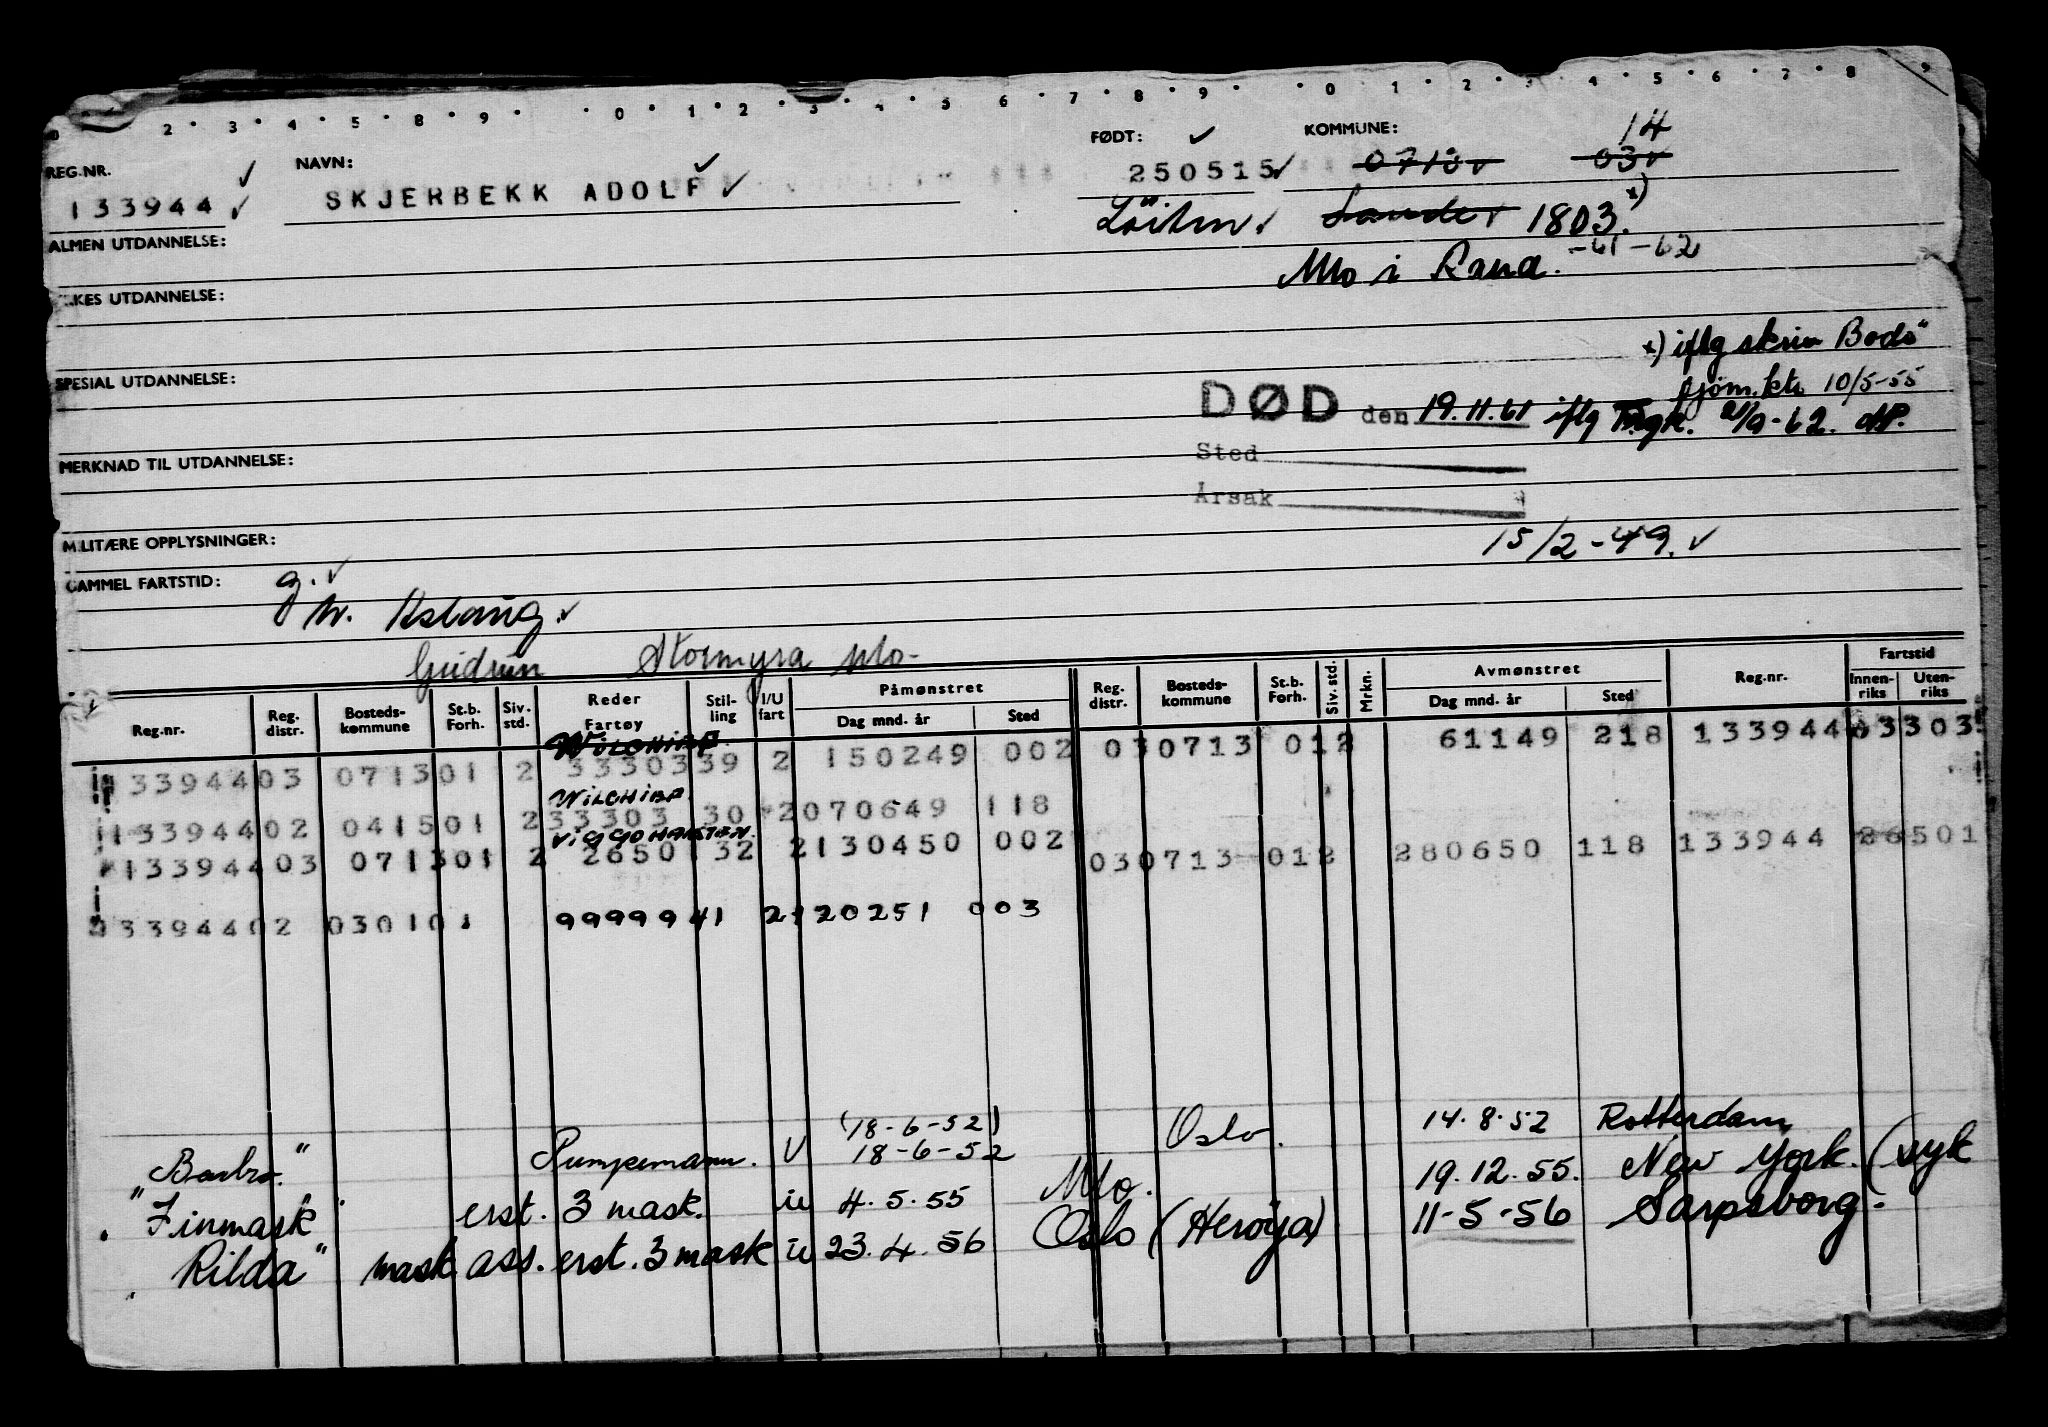 2 3 4 5 8 9 0 1 2 3 4 5 6 7 8 9 0 1 2 3 4 5 6 7 8 9
REG.NR. NAVN: FØDT: KOMMUNE: 14
133944 SKJERBEKK ADOLF 250515 0713 03
Löiten Sande 1803. x)
ALMEN UTDANNELSE: Mo i Rana. -61-62
YRKES UTDANNELSE:
x) iflg skriv Bodö
SPESIAL UTDANNELSE: sjöm.ktr 10/5-55
DØD den 19.11.61 iflg Trgk. 21/9-62.
Sted
MERKNAD TIL UTDANNELSE:
Årsak
MILITÆRE OPPLYSNINGER: 15/2-49.
GAMMEL FARTSTID: g.
Aslaug.
Gudrun Stormyra Mo
Påmønstret Avmønstret Fartstid
Reg.nr. Reg. distr. Bosteds-kommune St.b. Forh. Siv. std. Reder Fartøy Stil-ling I/U fart Dag mnd. år Sted Reg. distr. Bosteds-kommune St.b. Forh. Siv. std. Mrkn. Dag mnd. år Sted Reg.nr. Innen-riks Uten-riks
WILCHIEF
133944 03 0713 01 2 33303 39 2 150249 002 03 0713 01 2 61149 218 133944 33303
WILCHIEF
133944 02 0415 01 2 33303 30 2 070649 118
VIGGO HANSTEEN
133944 03 0713 01 2 2650 32 2 130450 002 03 0713 01 2 280650 118 133944 26501
133944 02 0301 01 99999 41 2 120251 003
(18-6-52)
"Barbro" Pumpemann. U 18-6-52 Oslo. 14.8.52 Rotterdam
"Finmark" erst. 3 mask. u 4.5.55 Mo. 19.12.55. New York. (syk
"Rilda" mask ass. erst. 3 mask u 23.4.56 Oslo (Herøya) 11-5-56 Sarpsborg.